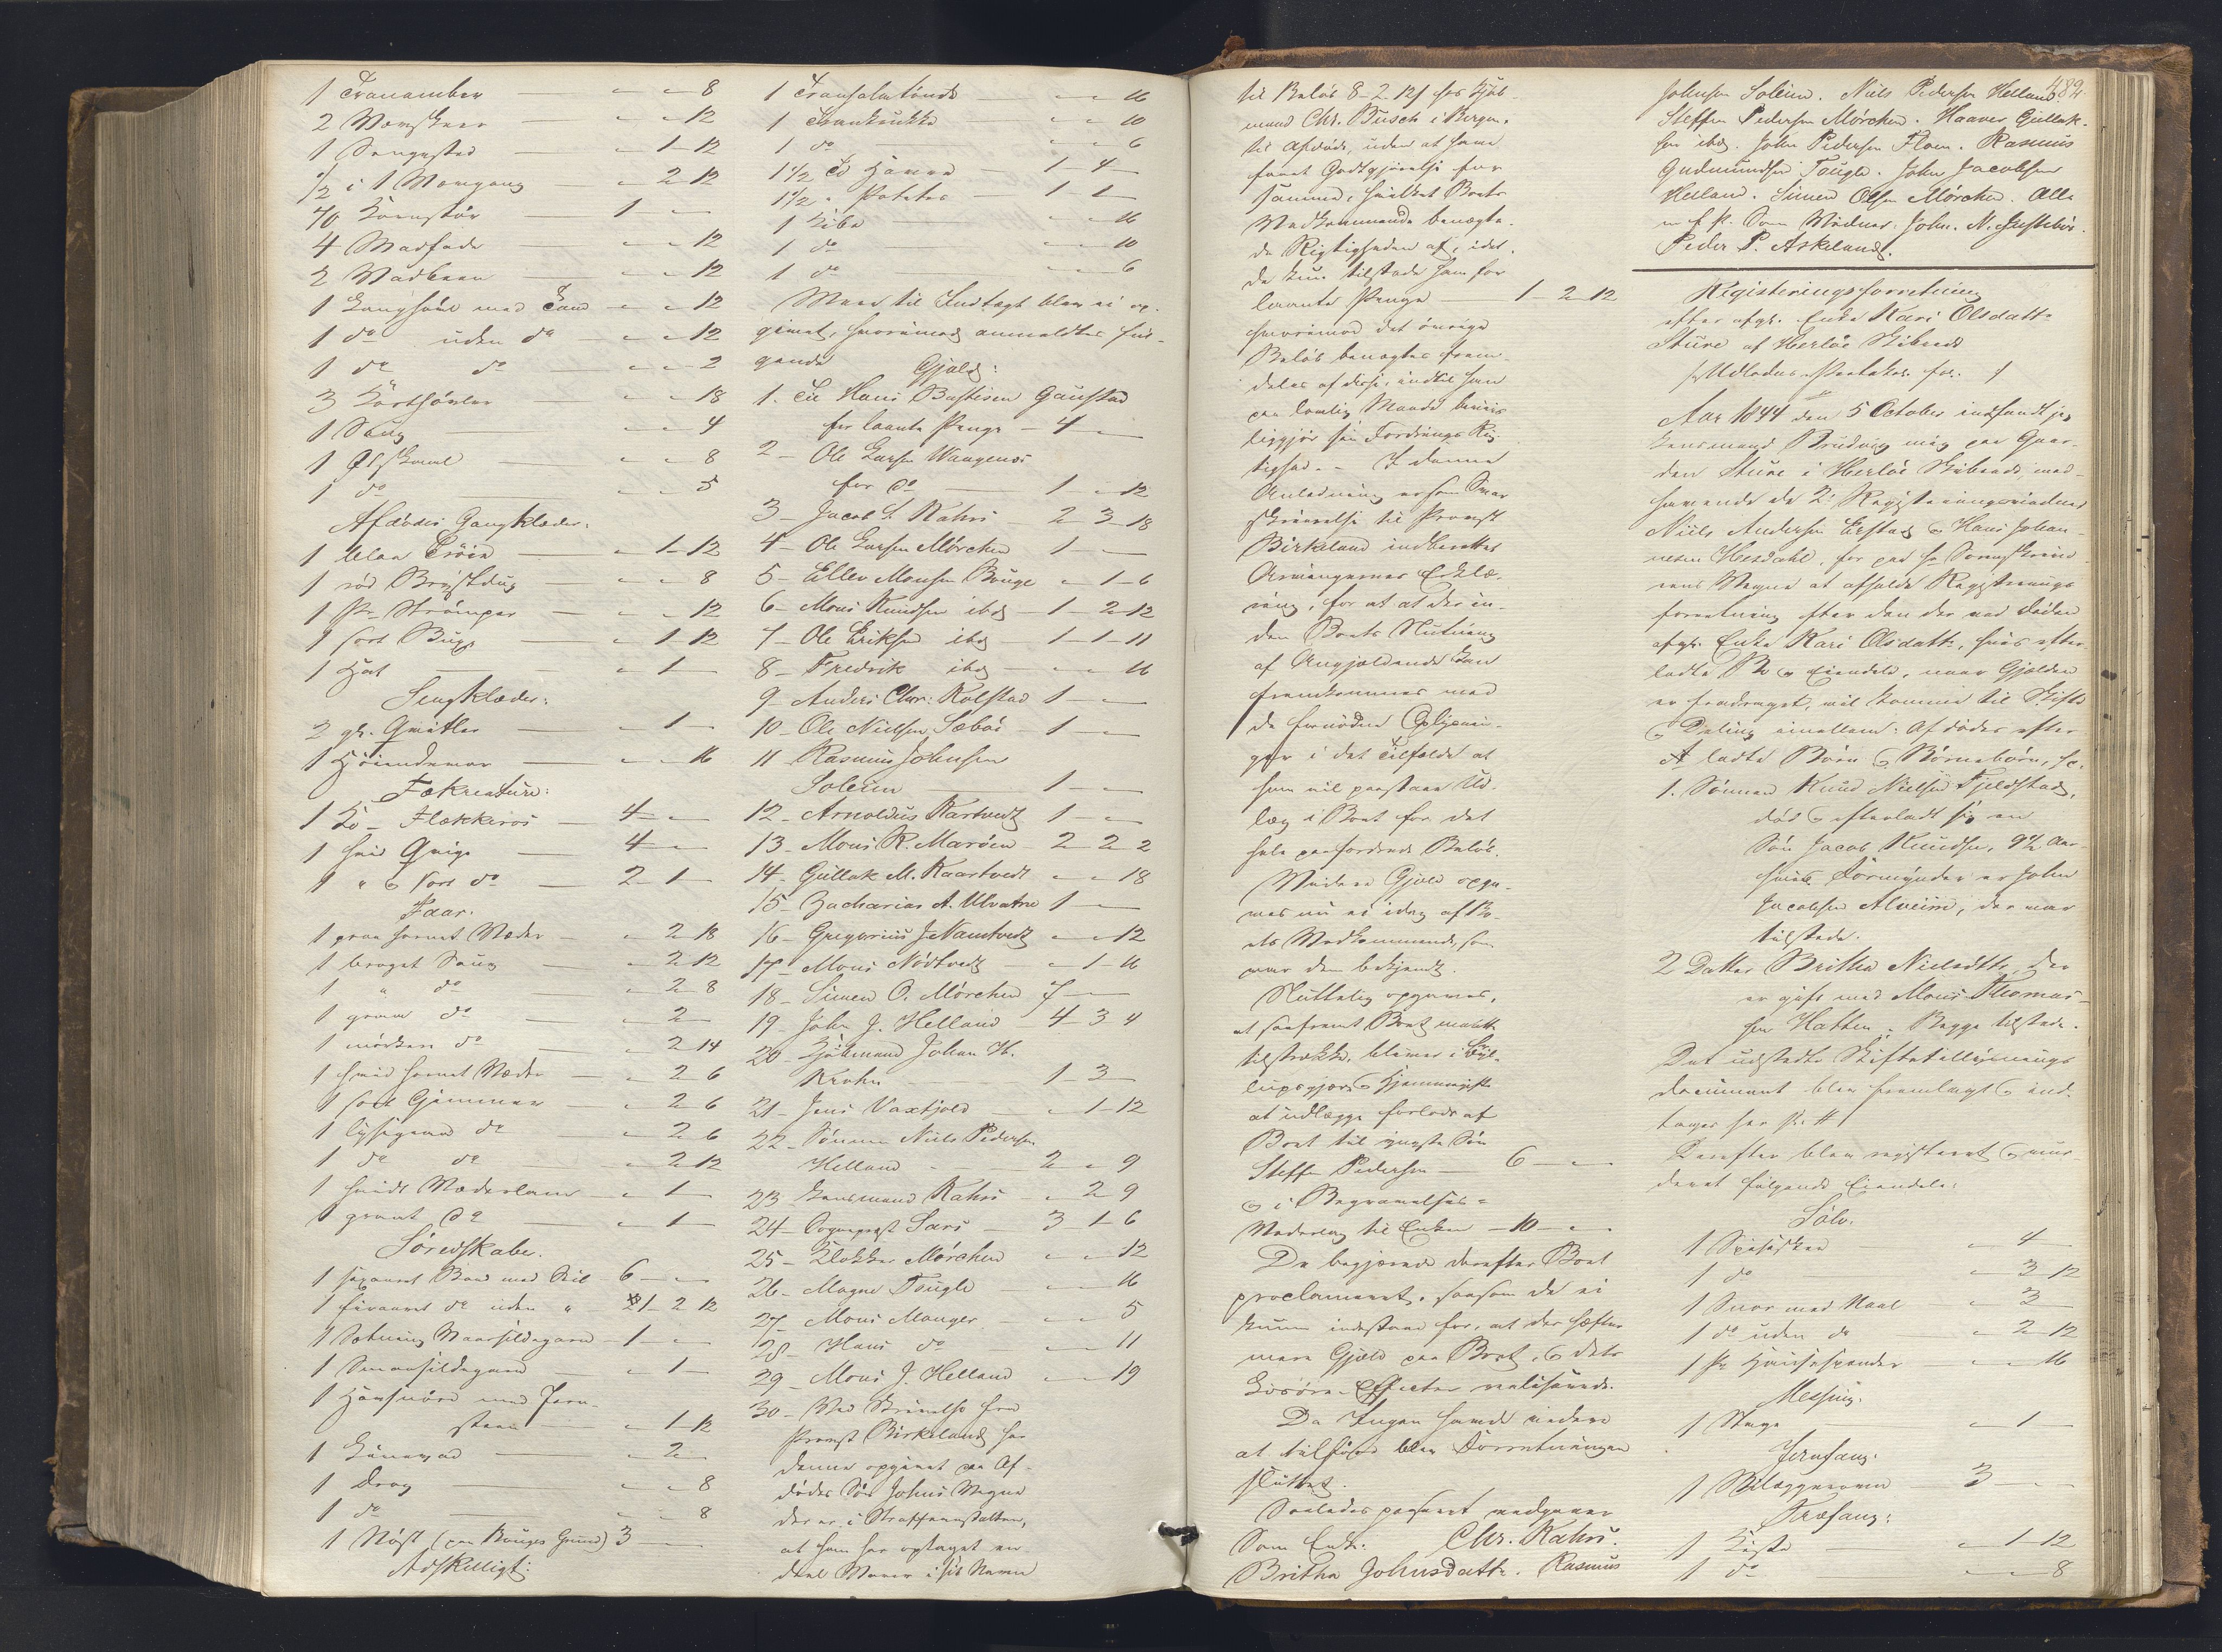 1 Tranamber — " " 8
2 — " " 12
1 Sengested — " 1 12
1/2 i 1 — " 2 12
40 Kornstör — 1 "
4 Madfade — " " 12
2 — " " 12
1 Langhövl med Tand " " 12
1 do uden do — " " 12
1 do do — " " 2
3 Korthövler — " " 18
1 Saug — " " 4
1 Ølskaal — " " 8
1 do — " " 5
Afdödes Gangklæder:
1 blaa Tröie — " 1 12
1 röd Brystdug — " " 8
1 Pr Strömper — " " 12
1 sort Buxe — " 1 12
1 Hat — " 1 —
Sengklæder:
2 gl. Qvitler — " 1 —
1 Höiendevar — " " 16
Fækreature:
1 Ko Flekkeros — 4 "
1 hvid Qvige — 4 "
1 " & sort do — 2 1 —
Faar.
1 graa hornet Væder — " 2 18
1 broget Soug — " 2 12
1 " do — " 2 8
1 graa do — " 2 —
1 mörkere do — " 2 14
1 hvid hornet Væder — " 2 6
1 sort Gimmer — " 2 6
1 lysegraa do — " 2 6
1 do do — " 2 12
1 hvidt Væderlam — " 1 —
1 graat do — " 1 —
Söredskabe.
1 sexaaret Baad med Seil — 6 — "
1 firaaret do uden " 1 2 12
1 Sætning Vaarsildegarn — 1 — "
1 Smaasildegarn — " 1 —
1 Havsnöre med Jern-
steen — " 1 12
1 — " 2 —
1 Drag — " " 8
1 do — " " 8
1 Nöst (paa Bouges Grund) 3 —
Adskilligt:
1 Transaltönde — " " 16
1 Trankrukke — " " 10
1 do — " " 6
1 1/2 Td Havre — 1 4 —
1 1/2 " Potetes — 1 1 —
1 Kibe — " " 16
1 do — " " 10
1 do — " " 6
Mere til Indtægt blev ei op-
givet, hvorimod anmeldtes föl-
gende Gjæld:
1. Til Hans Bastesen Gaustad
for laante Penge — 4 —
2 — Ole Larsen Waagenes
for do — 1 " 12
3 — Jacob S. Kahrs 2 3 18
4 — Ole Larsen Mörchen 1 —
5 — Ellev Monsen Bouge " 1 6
6 — Mons Knudsen ibd — 1 2 12
7 — Ole Eriksen ibd — 1 1 11
8 — Fredrik ibd — " " 16
9 — Anders Chr: Kolstad 1 —
10 — Ole Nielsen Sæbös 1 —
11 — Rasmus Johnsen
Soleim — 1 —
12 — Arnoldus Kartvedt 1 —
13 — Mons R. Maröen — 2 2 2
14 — Gullak M. Kaartvedt " " 18
15 — Zacharias A. Ulvatne 1 —
16 — Gregorius J. Namtvedt " " 12
17 — Mons Nödtvedt — " 1 16
18 — Simen O. Mörchen 7 —
19 — John J. Helland — 4 3 4
20 — Kjöbmand Johan W.
Krohn — 1 3 —
21 — Jens Vaxtjold — " 1 12
22 — Sönnen Niels Pedersen
Helland — 2 " 9
23 — Lensmand Kahrs — " 2 9
24 — Sognepræst Sars — 3 1 6
25 — Klokker Mörchen " " 12
26 — Magne Tougle — " " 16
27 — Mons Manger — " " 5
28 — Hans do — " " 11
29 — Mons J. Helland — " " 19
30 — Ved Skrivelse fra
Provst Birkeland har
denne opgivet paa Af-
dödes Sön Johns Vegne
der er i Straffeanstalten,
at han har optaget en
deel Varer i sit Navn
til Belöb 8 2 12 f hos Kjöb-
mand Chr. Büsch i Bergen
til Afdöde, uden at have
faaet Godtgjörelse for
samme, hvilket Boets
Vedkommende benegte-
de Rigtigheden af, idet
de kun tilstode ham for
laante Penge 1 — 2 12
hvorimod det övrige
Belöb benegtes frem-
deles af disse, indtil han
paa lovlig Maade beviis-
liggjör sin Fordrings Rig-
tighed. — I denne
Anledning
skrivelse til Provst
Birkeland indberettes
Arvingernes Erklæ-
ring, for at at der in-
den Boets Slutning
af Angjældende kan
fremkommes med
de fornödne Oplysnin-
ger i det Tilfælde at
han vil paastaae Ud-
læg i Boet for det
hele paafordrede Belöb.
Videre Gjæld opga-
ves nu ei idag af Bo-
ets Vedkommende, som
var dem bekjendt.
Sluttelig opgaves,
at saafremt Boet maatte
tilstrække, bliver i
& Hjemmegifte
at udlægge forlods af
Boet til yngste Sön
Steffen Pedersen — 6 — "
& i Begravelses-
Vederlag til Enken — 10 — "
De begjærede derefter Boet
proclameret, saasom de ei
kunne indestaae for, at der hefter
mere Gjæld paa Boet, & dets
Lösöre-Effecter realiserede.
Da Ingen havde videre
at tilföie blev Forretningen
sluttet.
Saaledes passeret vedgaaer
Som Enke: Chr. Kahrs.
Britha Johnsdatter. Rasmus
482
Johnsen Soleim. Niels Pedersen Helland
Steffen Pedersen Mörchen. Haaver Gullak-
sen ibd. John Pedersen Floen. Rasmus
Gudmundsen Tougle. John Jacobsen
Helland. Simen Olsen Mörchen. Alle
m. f. P. Som Vidner: John. N. Husebö.
Peder P. Askeland.
Registeringsforretning
efter afgl. Enke Kari Olsdatter
Sture af Herlöe Skibrede
f
Aar 1844 den 5 October indfandt jeg
Lensmand Brudvig mig paa Gaar-
den Sture i Herlöe Skibrede, med-
havende de 2de Registeringsvidner
Niels Andersen Erstad & Hans Johan-
nesen Hesdahl, for paa Hr. Sorenskrive-
rens Vegne at afholde Registrerings
forretning efter den der ved Döden
afgl. Enke Kari Olsdatter, hvis efter-
ladte Bo & Eiendele, naar Gjælden
er fradraget, vil komme til Skifte
& Deling imellem Afdödes efter-
ladte Börn & Börnebörn,
1. Sönnen Knud Nielsen Fjeldstad,
död & efterladt sig en
Sön Jacob Knudsen, 9 1/2 Aar
hvis Formynder er John
Jacobsen Alveim, der var
tilstede.
2 Datter Britha Nielsdtr, der
er gift med Mons Thomas-
sen Hatten. Begge tilstede.
Det udstedte Skiftetillysnings
document blev fremlagt & ind-
tages her
Derefter blev registeret & vur-
deret fölgende Eiendele:
Sölv.
1 Spiseskee — " 4 —
1 do — " 3 12
1 Snor med Naal — " 3 —
1 do uden do — " 2 12
1 Pr Handsespender — " " 16
Messing.
1 Stage — " 1 —
Jernfang:
1 Bilæggerovn — 3 —
Træfang:
1 Kiste — " 1 12
1 do — " " 8